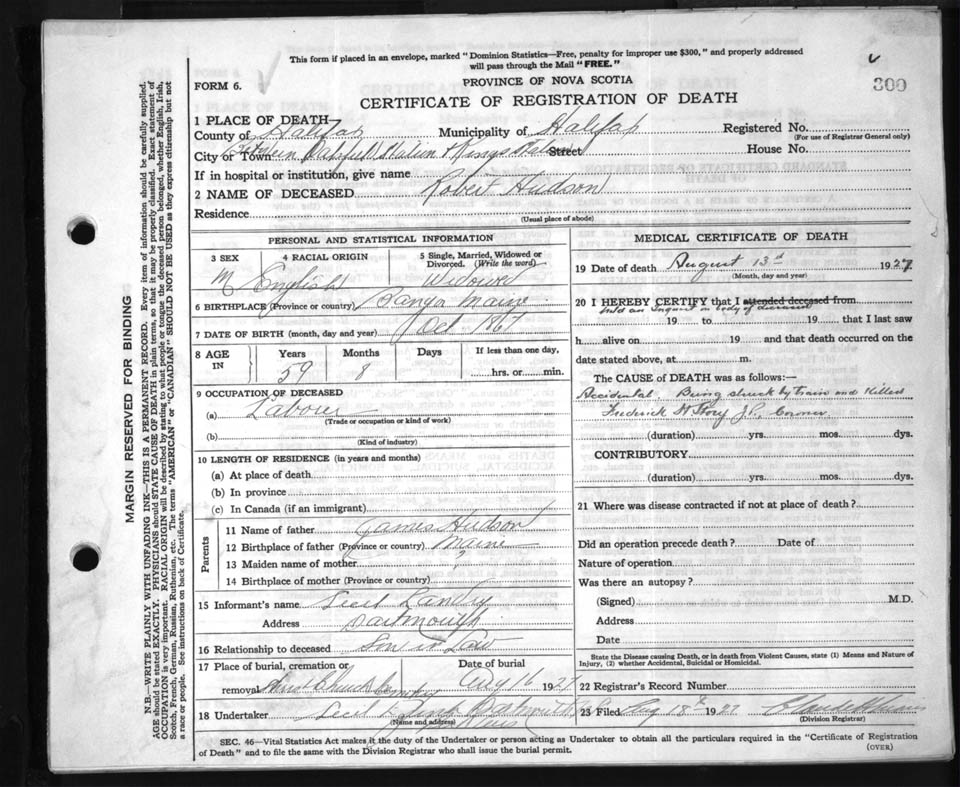 This form if placed in an envelope, marked "Dominion Statistics—Free, penalty for improper use $300," and properly addressed
will pass through the Mail "FREE."
FORM 6.
PROVINCE OF NOVA SCOTIA
300
CERTIFICATE OF REGISTRATION OF DEATH
1 PLACE OF DEATH—
County of Halifax Municipality of Halifax Registered No.
(For use of Registrar General only)
City or Town Station & Kings Street House No.
If in hospital or institution, give name
2 NAME OF DECEASED Robert Hudson
Residence
(Usual place of abode)
PERSONAL AND STATISTICAL INFORMATION
3 SEX 4 RACIAL ORIGIN 5 Single, Married, Widowed or Divorced. (Write the word)
M English Widower
6 BIRTHPLACE (Province or country) Maine
7 DATE OF BIRTH (month, day and year) Oct 1867
8 AGE IN Years Months Days If less than one day,
59 8 hrs. or min.
9 OCCUPATION OF DECEASED
(a) Labourer
(Trade or occupation or kind of work)
(b)
(Kind of industry)
10 LENGTH OF RESIDENCE (in years and months)
(a) At place of death
(b) In province
(c) In Canada (if an immigrant)
Parents
11 Name of father James Hudson
12 Birthplace of father (Province or country) Maine
13 Maiden name of mother ?
14 Birthplace of mother (Province or country)
15 Informant's name Cecil Landry
Address Dartmouth
16 Relationship to deceased Son in Law
17 Place of burial, cremation or Date of burial
removal Church Cemetery Aug 16 1927
18 Undertaker Cecil Dartmouth
(Name and address)
MEDICAL CERTIFICATE OF DEATH
19 Date of death August 13th 1927
(Month, day and year)
20 I HEREBY CERTIFY that I attended deceased from
held an Inquest on body of deceased
19 to 19 that I last saw
h alive on 19 and that death occurred on the
date stated above, at m.
The CAUSE of DEATH was as follows:—
Accidental Being struck by train and Killed
Frederick W Story J.P. Coroner
(duration) yrs. mos. dys.
CONTRIBUTORY
(duration) yrs. mos. dys.
21 Where was disease contracted if not at place of death?
Did an operation precede death? Date of
Nature of operation
Was there an autopsy?
(Signed) M.D.
Address
Date
State the Disease causing Death, or in death from Violent Causes, state (1) Means and Nature of
Injury, (2) whether Accidental, Suicidal or Homicidal.
22 Registrar's Record Number
23 Filed Aug 18th 1927
(Division Registrar)
SEC. 46—Vital Statistics Act makes it the duty of the Undertaker or person acting as Undertaker to obtain all the particulars required in the "Certificate of Registration
of Death" and to file the same with the Division Registrar who shall issue the burial permit.
(OVER)
MARGIN RESERVED FOR BINDING
N.B.—WRITE PLAINLY WITH UNFADING INK—THIS IS A PERMANENT RECORD. Every item of information should be carefully supplied.
AGE should be stated EXACTLY. PHYSICIANS should STATE CAUSE OF DEATH in plain terms, so that it may be properly classified. Exact statement of
OCCUPATION is very important. RACIAL ORIGIN will be described by stating to what people or tongue the deceased person belonged, whether English, Irish,
Scotch, French, German, Russian, Ruthenian, etc. The terms "AMERICAN" or "CANADIAN" SHOULD NOT BE USED as they express citizenship but not
a race or people. See instructions on back of Certificate.